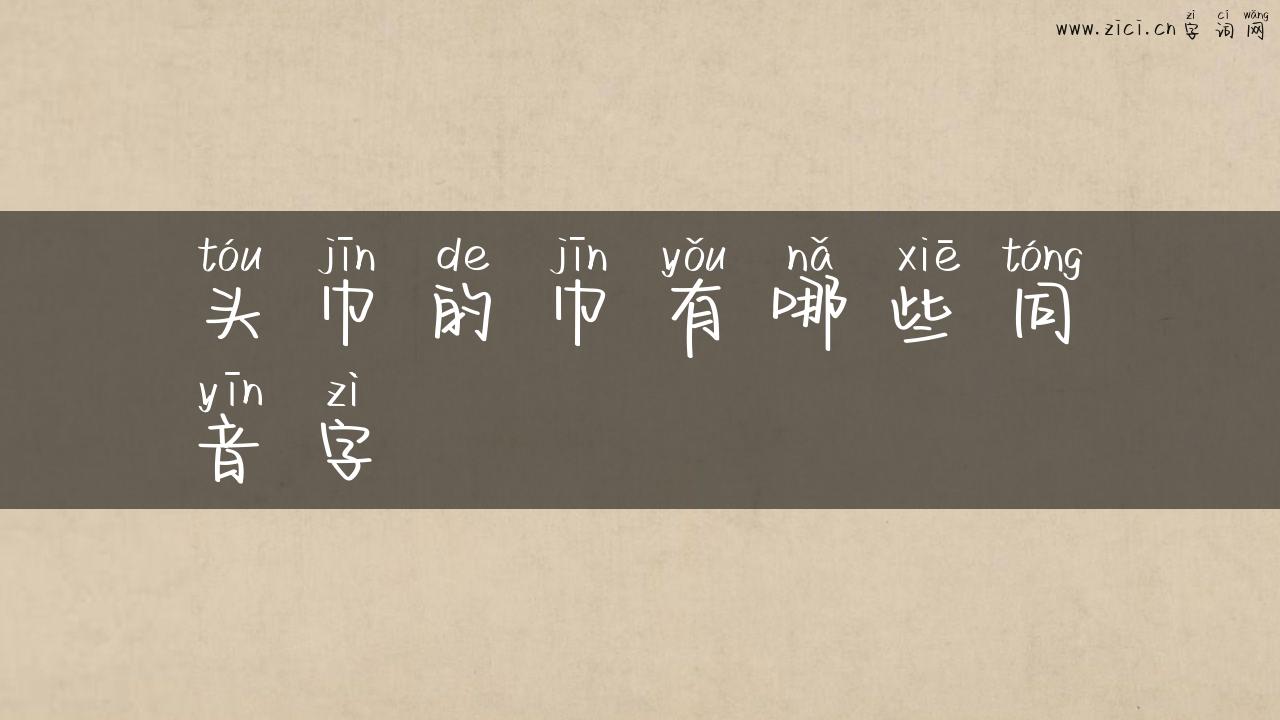 zì cí wǎng
www.zici.cn 字词网
tóu jīn de jīn yǒu nǎ xiē tóng
头巾的巾有哪些同
yīn zì
音字